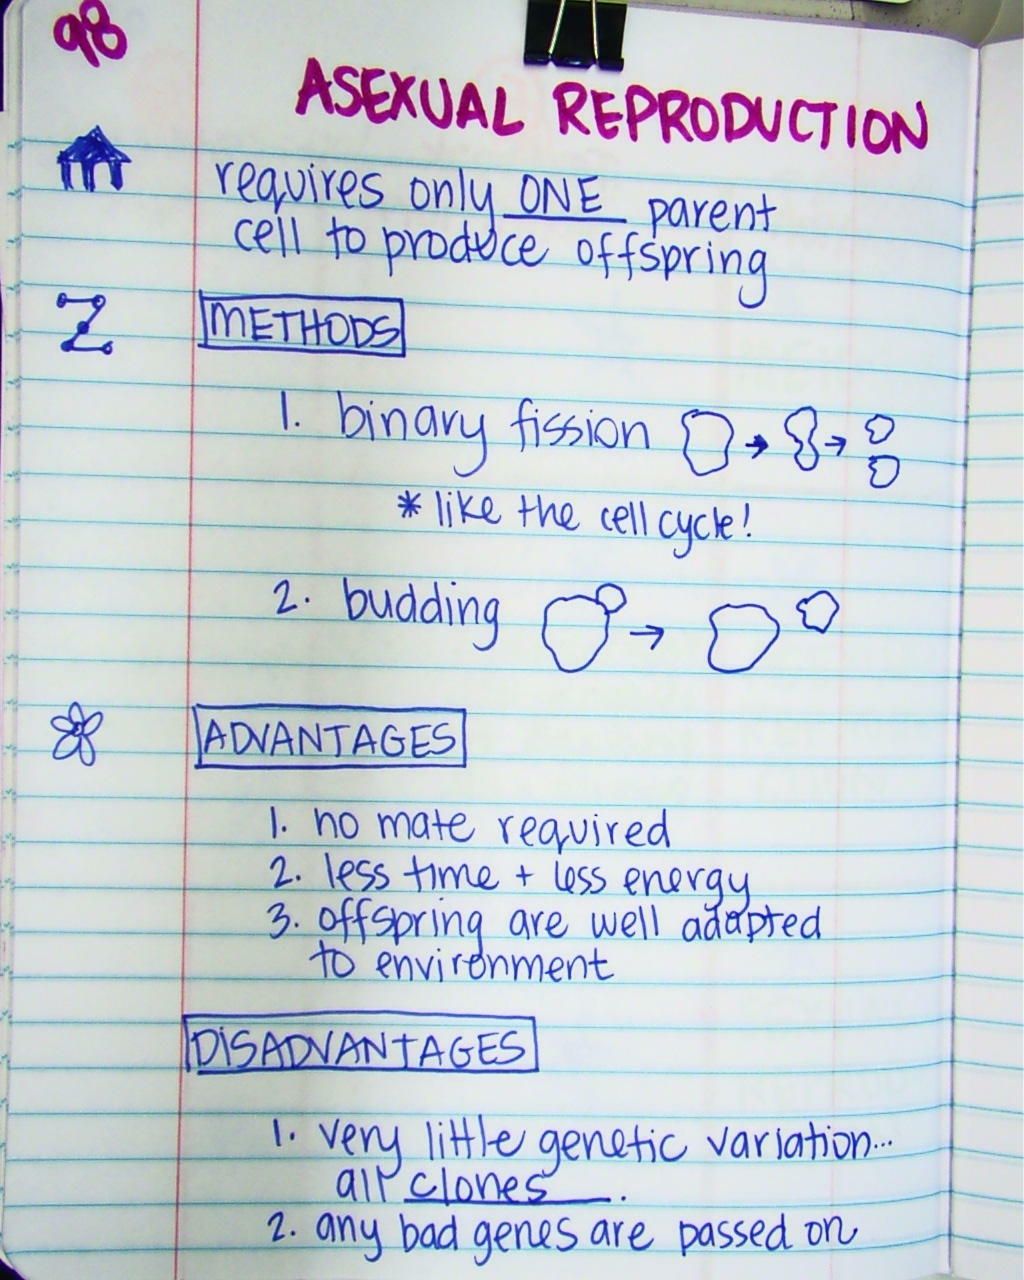 98
ASEXUAL REPRODUCTION
requires only ONE parent
cell to produce offspring
METHODS
1. binary fission
* like the cell cycle!
2. budding
ADVANTAGES
1. no mate required
2. less time + less energy
3. offspring are well adapted
to environment
DISADVANTAGES
1. very little genetic variation...
all clones.
2. any bad genes are passed on